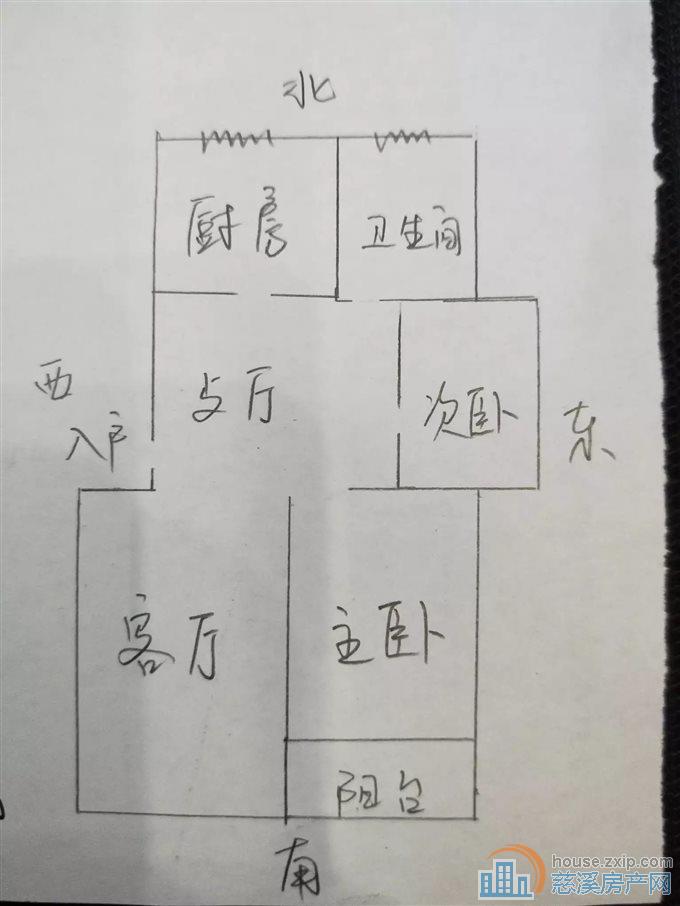 北
厨房
卫生间
西
入户
歺厅
次卧
东
客厅
主卧
阳台
南
house.zxip.com
慈溪房产网